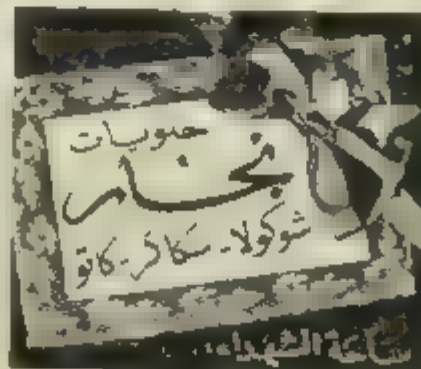 حلويات
نجار
شوكولا - سكاكر - كاتو
ساحة الشهداء